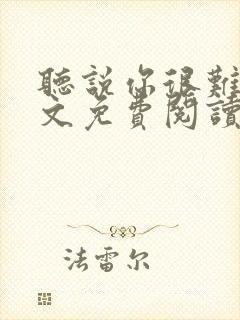 聽説你很難
文免費閱讀
法雷尔